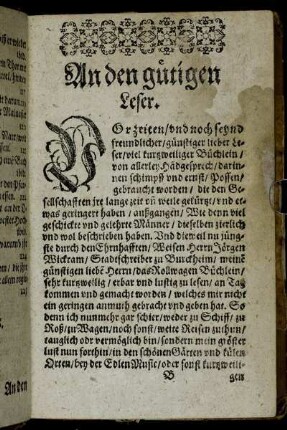 An den gütigen
Leser.
VOrzeiten / vnd noch seynd
freundlicher / günstiger lieber Le-
ser / viel kurtzweiliger Büchlein /
von allerley Hãdgesprech / darin-
nen schimpff vnd ernst / Possen /
gebraucht worden / die den Ge-
sellschafften jre lange zeit vñ weile gekürtzt / vnd et-
was geringert haben / außgangen / Wie denn viel
geschickte vnd gelehrte Männer / dieselben zierlich
vnd wol beschrieben haben. Vnd dieweil nu jüng-
ste durch den Ehrnhafften / Weisen Herrn Jörgen
Wickram / Stadtschreiber zu Burckheim / meine
günstigen liebẽ Herrn / das Rollwagen Büchlein /
sehr kurtzweilig / erbar vnd lustig zu lesen / an Tag
kommen vnd gemacht worden / welches mir nicht
ein geringen anmuth gebracht vnd geben hat. So
denn ich nunmehr gar schier / weder zu Schiff / zu
Roß / zu Wagen / noch sonst / weite Reisen zuthun /
tauglich odr vermöglich bin / sondern mein gröster
lust nun forthin / in den schönen Gärten vnd külen
Orten / bey der Edlen Music / oder sonst kurtzweili-
B
gen
An den